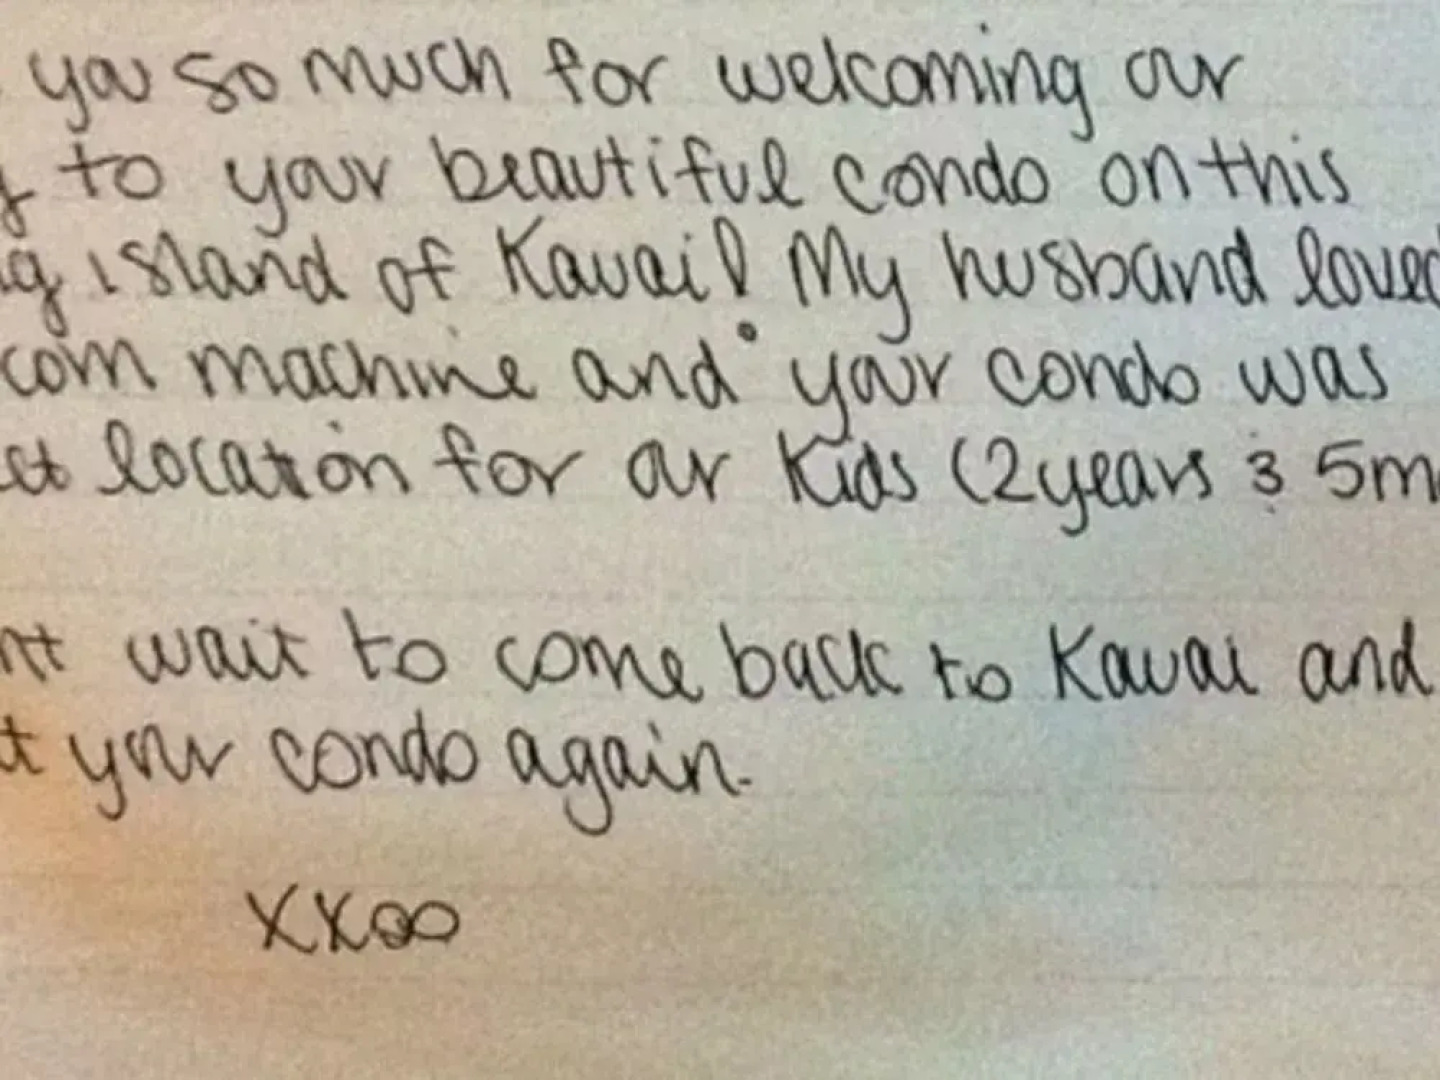 you so much for welcoming our
y to your beautiful condo on this
ng island of Kauai! My husband loved
corn machine and your condo was
ct location for our kids (2years & 5m
nt wait to come back to Kauai and
t your condo again.
xxoo